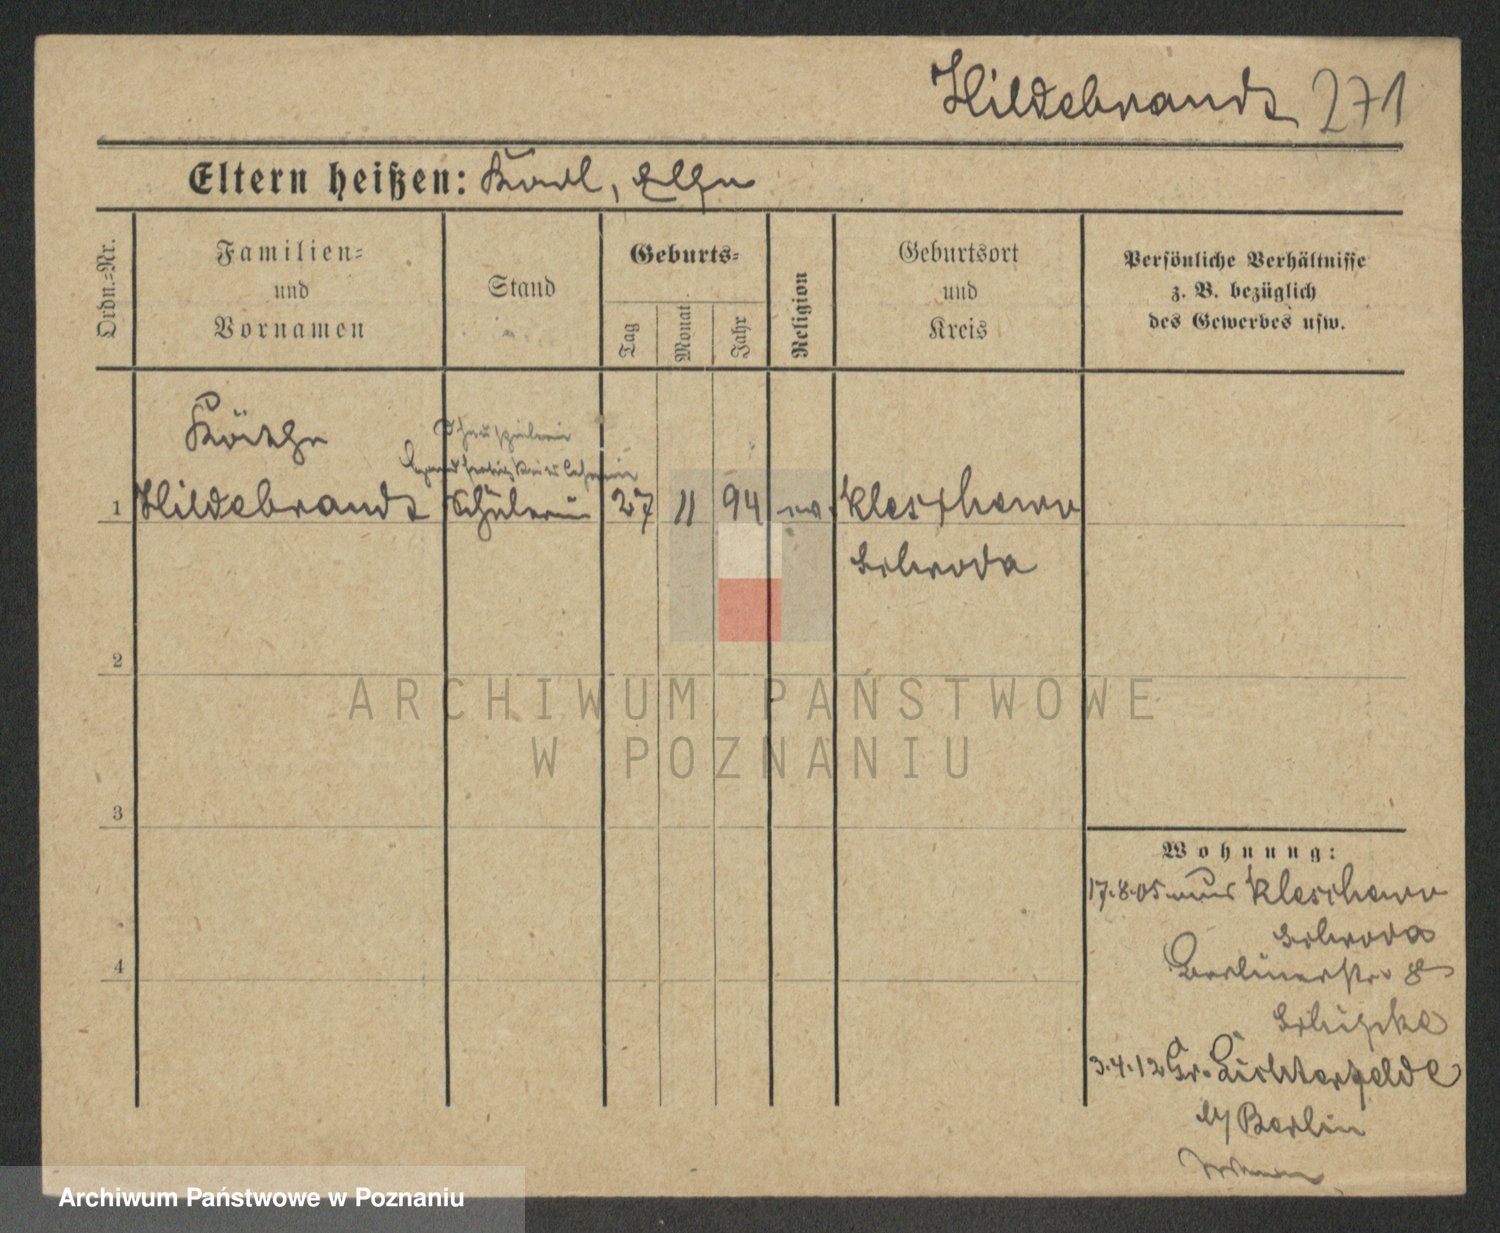 Hildebrandt 271
Eltern heißen: Karl, Else
Ordn.-Nr.
Familien-
und
Vornamen
Stand
Geburts-
Tag
Monat
Jahr
Religion
Geburtsort
und
Kreis
Persönliche Verhältnisse
z. B. bezüglich
des Gewerbes usw.
Käthe
1 Hildebrandt Schülerin 27 11 94 ev. Kleschewo
Schroda
2
ARCHIWUM PAŃSTWOWE
W POZNANIU
3
4
Wohnung:
17.8.05 aus Kleschewo
Schroda
Berlinerstr. 8
3.4.12 Gr. Lichterfelde
b/ Berlin
Archiwum Państwowe w Poznaniu